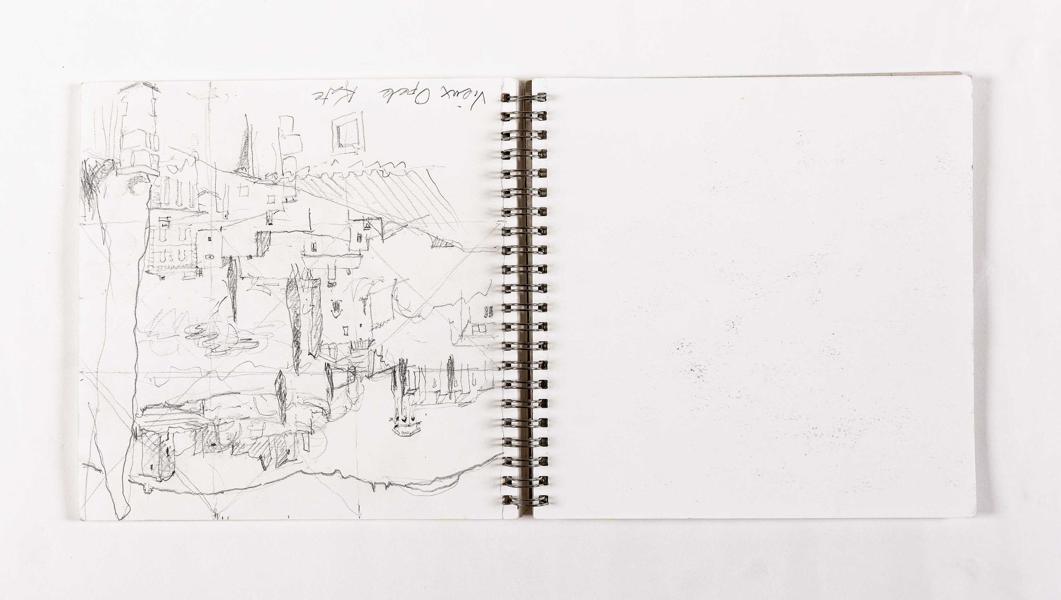 Vieux Opede Kate